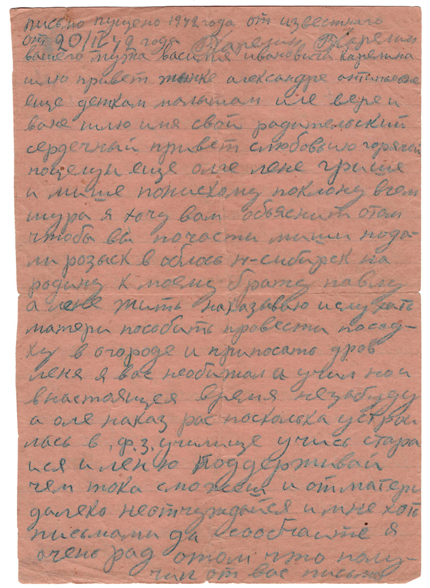 письмо пущено 1942 года от известного
от 20/II 42 года Карелин
вашего мужа василия ивановича карелина
шлю привет жынке александре
еще деткам малытам иле вере и
ване шлю имя свой радительский
сердечный привет слюбовию горячий
поцелуи еще оле лене грише
и мише понискому поклону всем
шура я хочу вам объяснит отом
чтобы вы почасти миши пода-
ли розыск в облось н-сибирск на
родину к моему брату павлу
а лене жить наказываю ислухать
матери пособить провести посад-
ку в огороде и припосать дров
леня я вас необижал а учил но и
внастоящея время незабуду
а оле наказ рас посколька устрои
лась в ф.з.училище учись стара
ися и леню поддерживай
чем тока сможеш и отматери
далеко неотчуждайся и мне хоть
письмами да сообчайте я
очень рад отом что полу-
чил от вас письмо